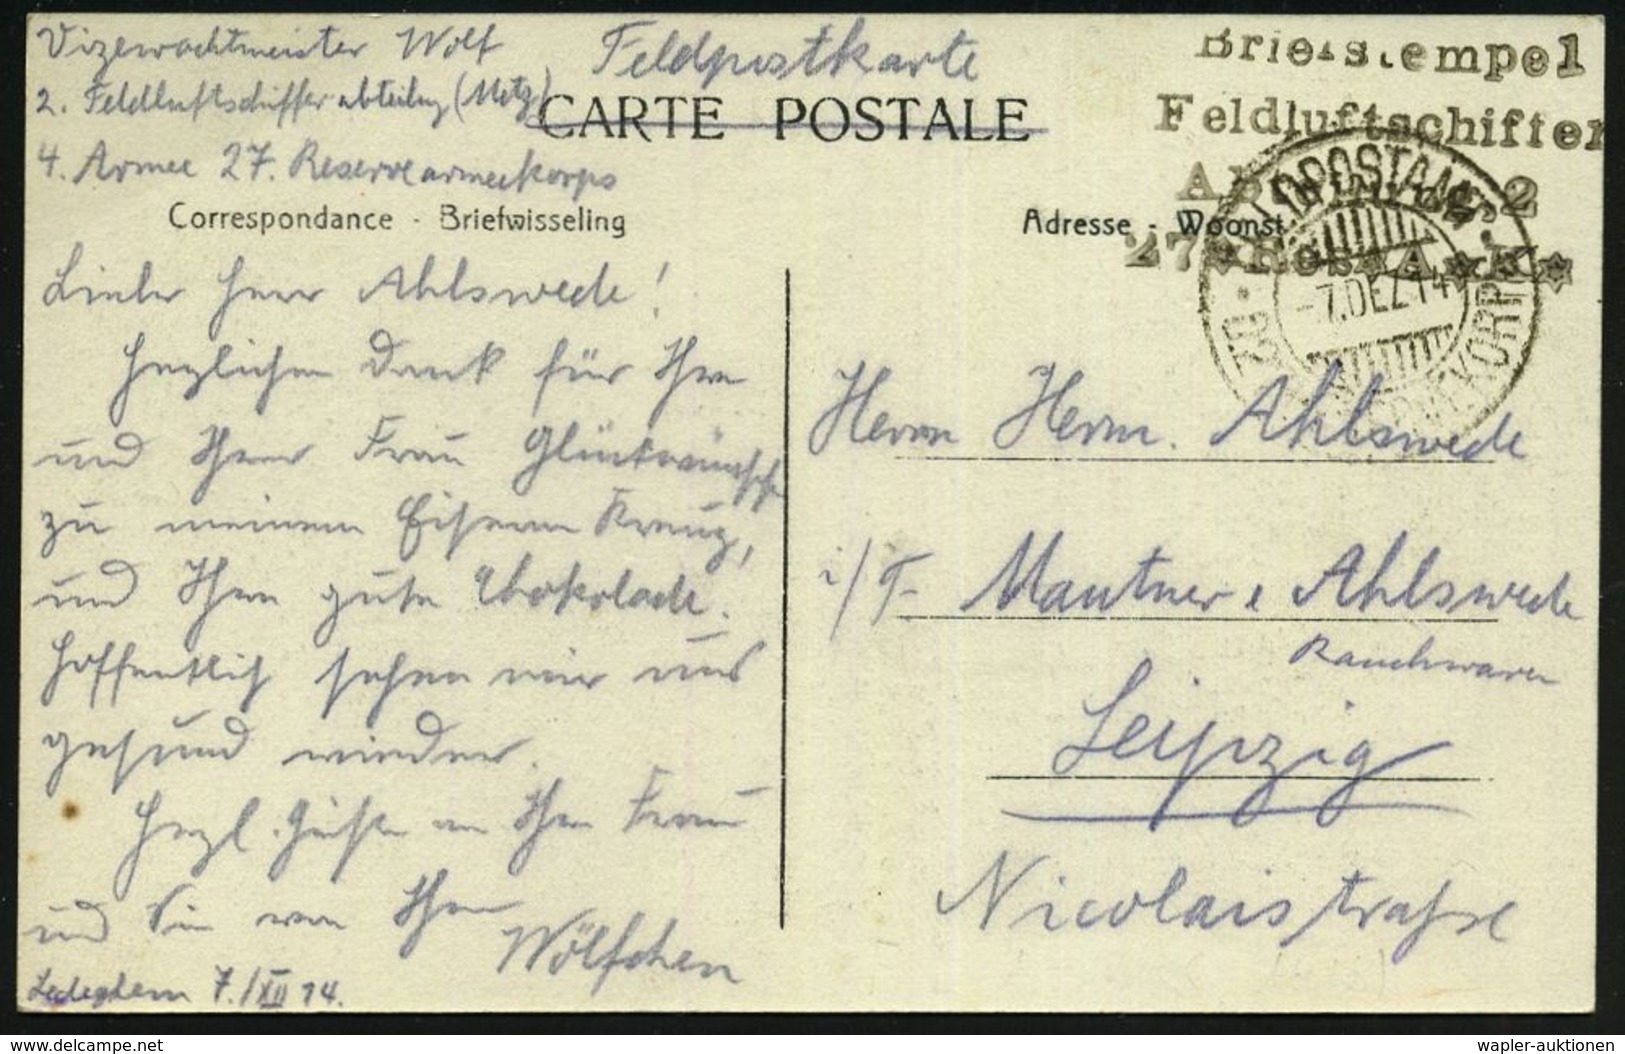 Vizewachtmeister Wolf
2. Feldluftschifferabteilung (Metz)
4. Armee 27. Reservearmeekorps
Feldpostkarte
CARTE POSTALE
Briefstempel
Feldluftschiffer
Abteilung.2
27*Res*A*K*
FELDPOSTAMT
-7.DEZ.14
Correspondance - Briefwisseling
Adresse - Woonst
Lieber Herr Ahlswede!
Herzlichen Dank für Ihre
und Ihrer Frau Glückwünsche
zu meinem Eisernen Kreuz,
und Ihre gute Chokolade.
Hoffentlich sehen wir uns
gesund wieder.
Herzl. Grüße an Ihre Frau
und Sie von Ihrem
Wölfchen
Ledeghem 7./XII 14.
Herrn Herm. Ahlswede
i/F. Mautner & Ahlswede
Rauchwaren
Leipzig
Nicolaistraße
www.delcampe.net
wapler-auktionen